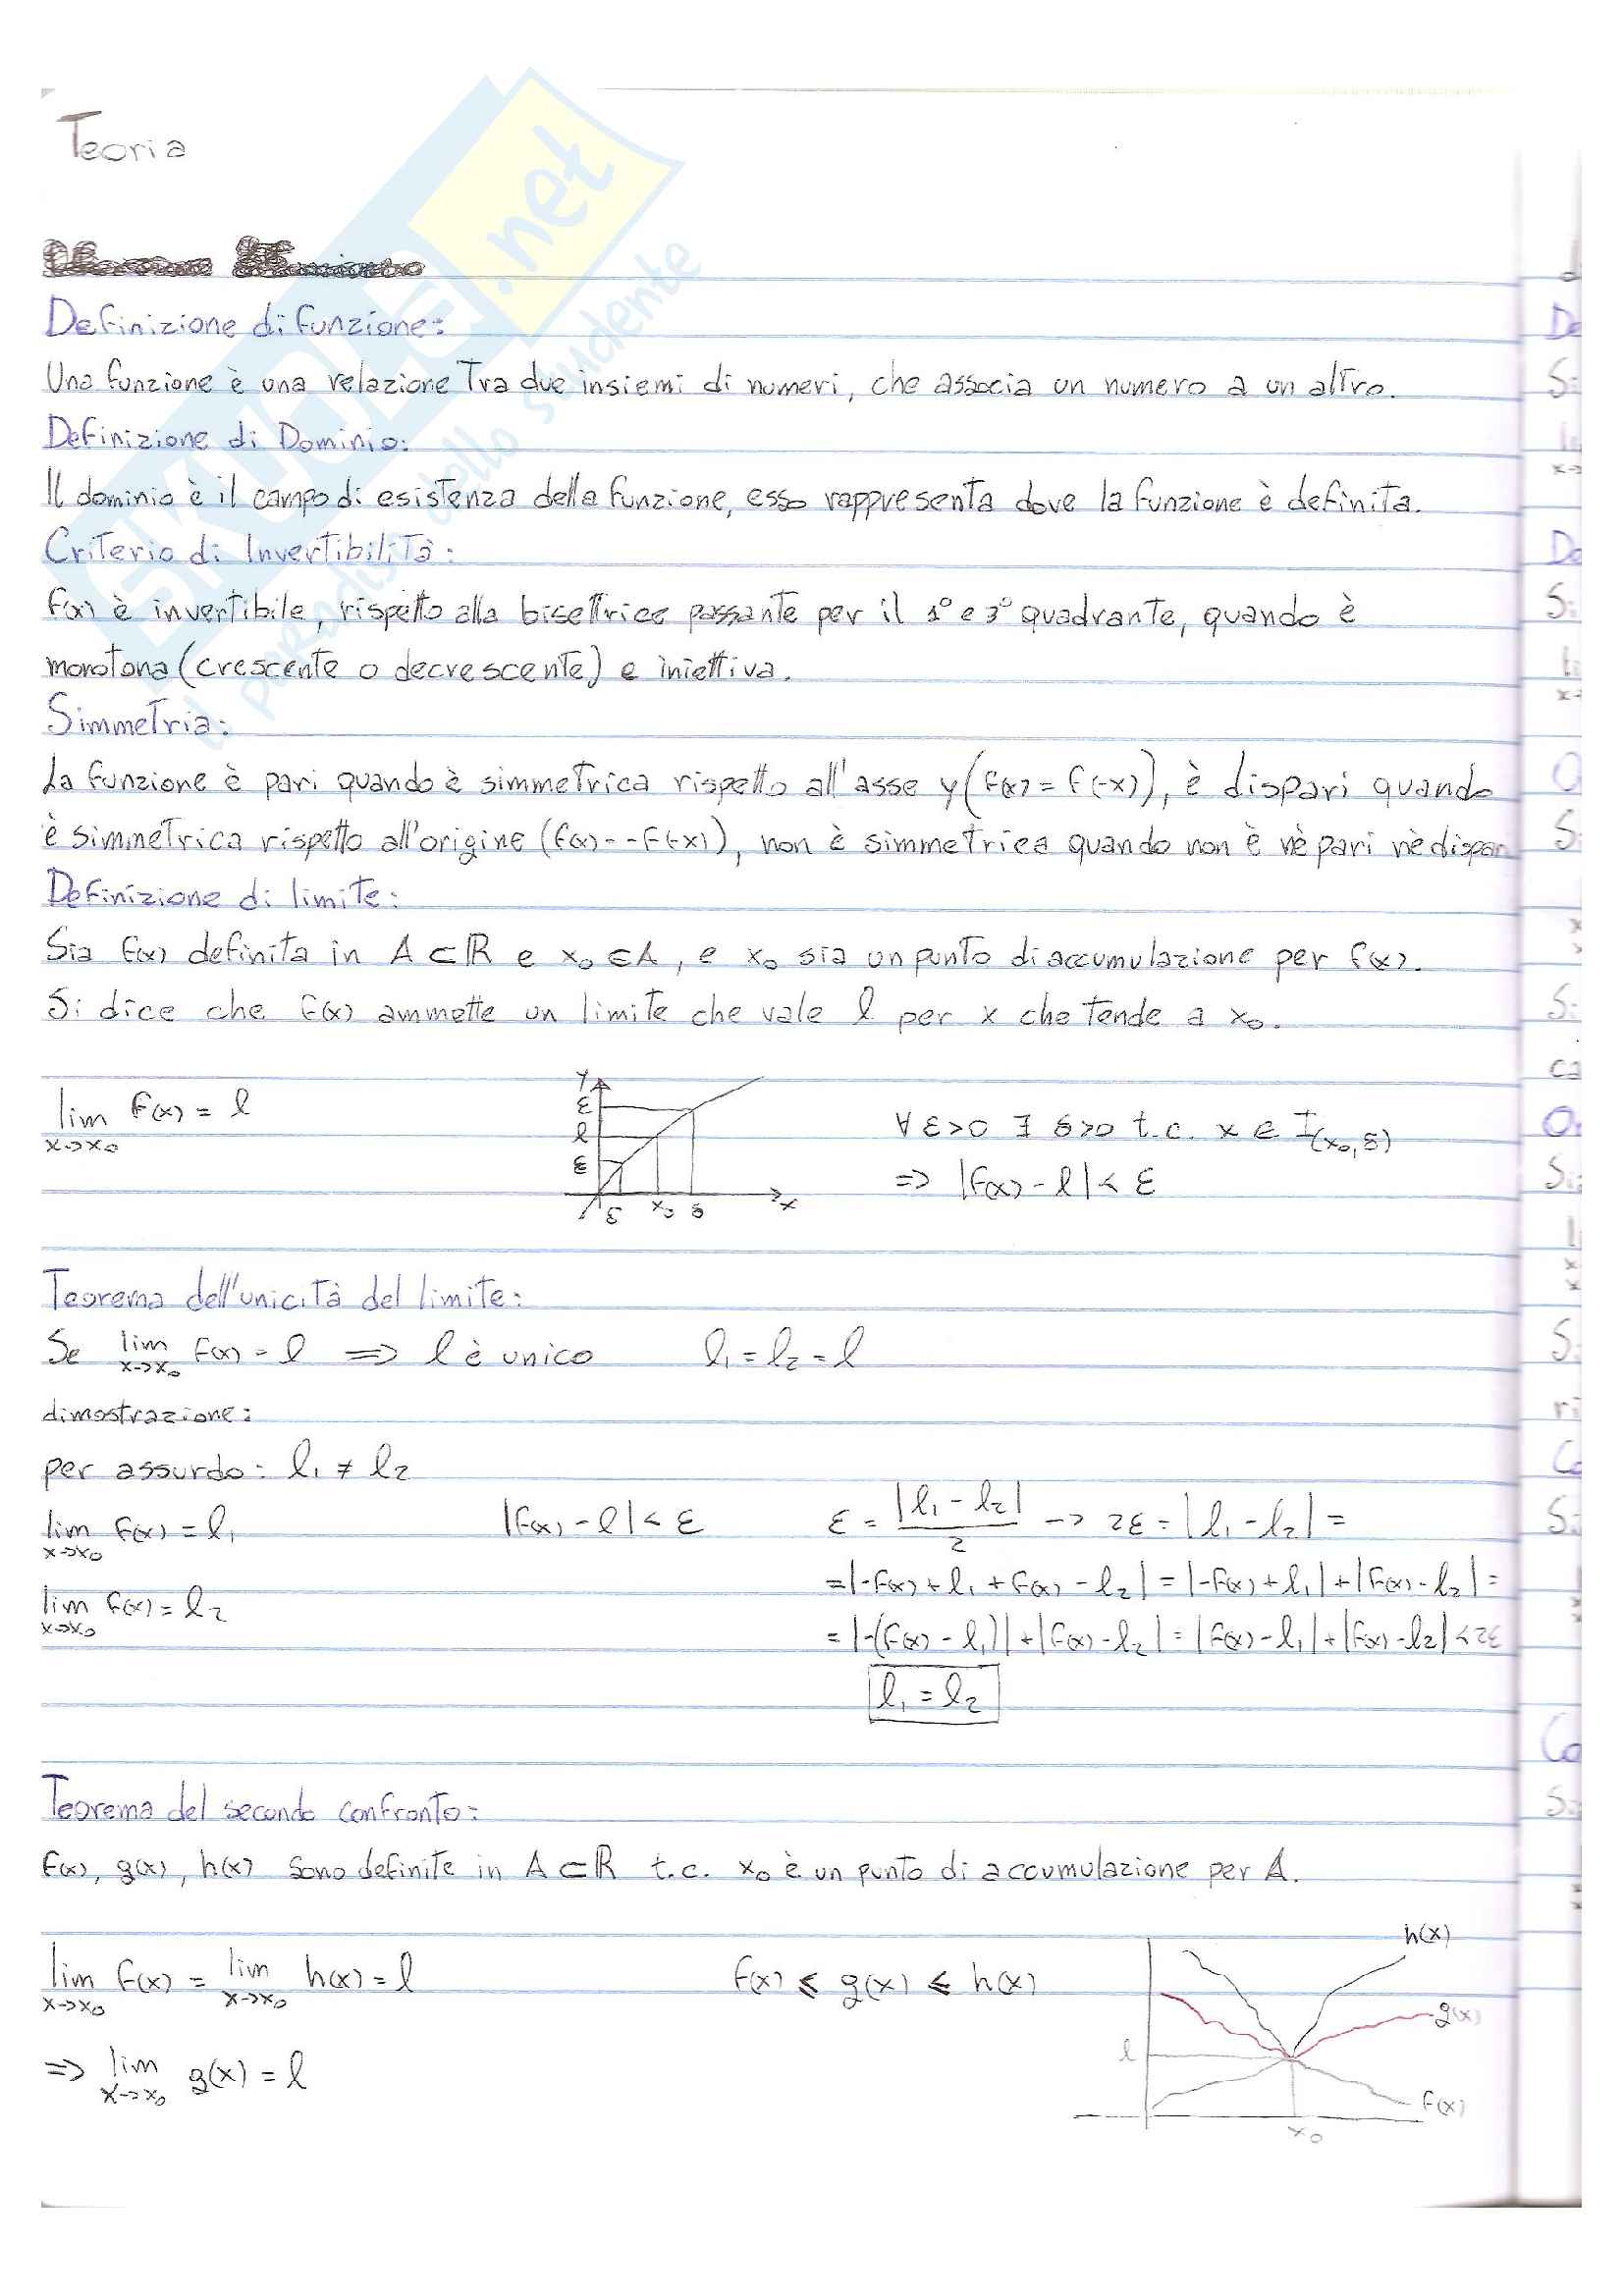 Teoria
Definizione di funzione:
Una funzione è una relazione tra due insiemi di numeri, che associa un numero a un altro.
Definizione di Dominio:
Il dominio è il campo di esistenza della funzione, esso rappresenta dove la funzione è definita.
Criterio di Invertibilità:
f(x) è invertibile, rispetto alla bisettrice passante per il 1° e 3° quadrante, quando è
monotona (crescente o decrescente) e iniettiva.
Simmetria:
La funzione è pari quando è simmetrica rispetto all'asse y (f(x) = f(-x)), è dispari quando
è simmetrica rispetto all'origine (f(x) = -f(-x)), non è simmetrica quando non è nè pari nè dispari
Definizione di limite:
Sia f(x) definita in A ⊂ ℝ e x₀ ∈ A, e x₀ sia un punto di accumulazione per f(x).
Si dice che f(x) ammette un limite che vale l per x che tende a x₀.
lim f(x) = l
x->x₀
y
ε
l
ε
δ x₀ δ x
∀ ε>0 ∃ δ>0 t.c. x ∈ I(x₀, δ)
=> |f(x) - l| < ε
Teorema dell'unicità del limite:
Se lim f(x) = l => l è unico l₁ = l₂ = l
x->x₀
dimostrazione:
per assurdo: l₁ ≠ l₂
lim f(x) = l₁ |f(x) - l| < ε ε = |l₁ - l₂|/2 -> 2ε = |l₁ - l₂| =
x->x₀
= |-f(x) + l₁ + f(x) - l₂| = |-f(x) + l₁| + |f(x) - l₂| =
lim f(x) = l₂
x->x₀
= |-(f(x) - l₁)| + |f(x) - l₂| = |f(x) - l₁| + |f(x) - l₂| < 2ε
l₁ = l₂
Teorema del secondo confronto:
f(x), g(x), h(x) sono definite in A ⊂ ℝ t.c. x₀ è un punto di accumulazione per A.
lim f(x) = lim h(x) = l f(x) ≤ g(x) ≤ h(x)
x->x₀ x->x₀
=> lim g(x) = l
x->x₀
h(x)
g(x)
l
f(x)
x₀
SKUOLA.net
il paradiso dello studente